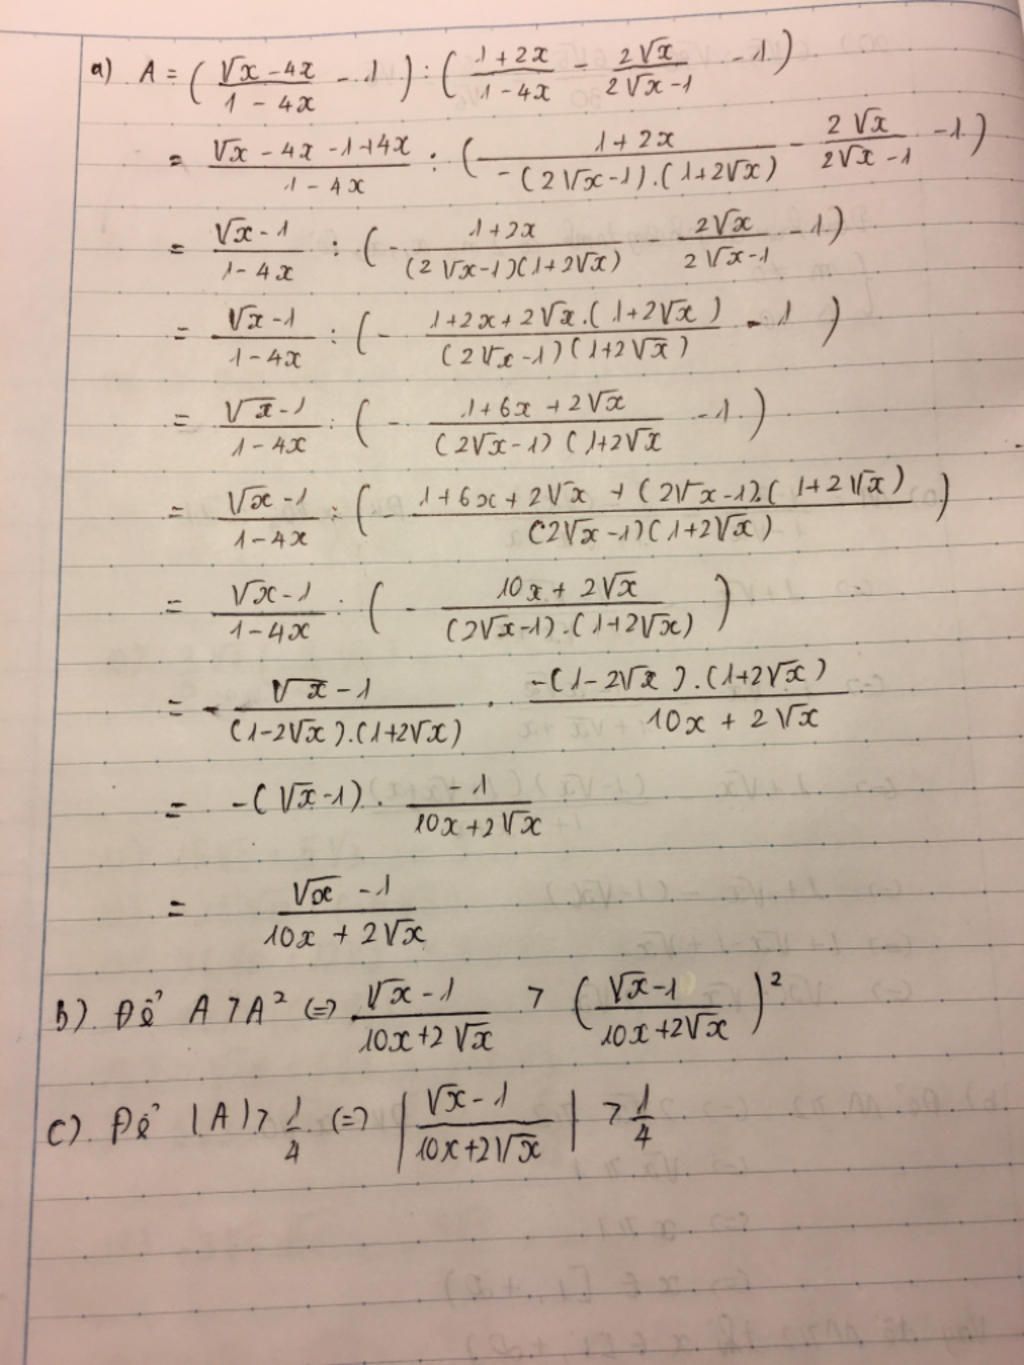 a) A = ( (√x - 4x)/(1 - 4x) - 1 ) : ( (1 + 2x)/(1 - 4x) - (2√x)/(2√x - 1) - 1 )
= (√x - 4x - 1 + 4x)/(1 - 4x) : ( (1 + 2x)/(-(2√x - 1).(1 + 2√x)) - (2√x)/(2√x - 1) - 1 )
= (√x - 1)/(1 - 4x) : ( - (1 + 2x)/((2√x - 1)(1 + 2√x)) - (2√x)/(2√x - 1) - 1 )
= (√x - 1)/(1 - 4x) : ( - (1 + 2x + 2√x.(1 + 2√x))/((2√x - 1)(1 + 2√x)) - 1 )
= (√x - 1)/(1 - 4x) : ( - (1 + 6x + 2√x)/((2√x - 1)(1 + 2√x) - 1 )
= (√x - 1)/(1 - 4x) : ( - (1 + 6x + 2√x + (2√x - 1).(1 + 2√x))/((2√x - 1)(1 + 2√x)) )
= (√x - 1)/(1 - 4x) : ( - (10x + 2√x)/((2√x - 1).(1 + 2√x)) )
= - (√x - 1)/((1 - 2√x).(1 + 2√x)) . (-(1 - 2√x).(1 + 2√x))/(10x + 2√x)
= -(√x - 1) . (-1)/(10x + 2√x)
= (√x - 1)/(10x + 2√x)
b). Để A > A² (=) (√x - 1)/(10x + 2√x) > ( (√x - 1)/(10x + 2√x) )²
c). Để |A| > 1/4 (=) | (√x - 1)/(10x + 2√x) | > 1/4